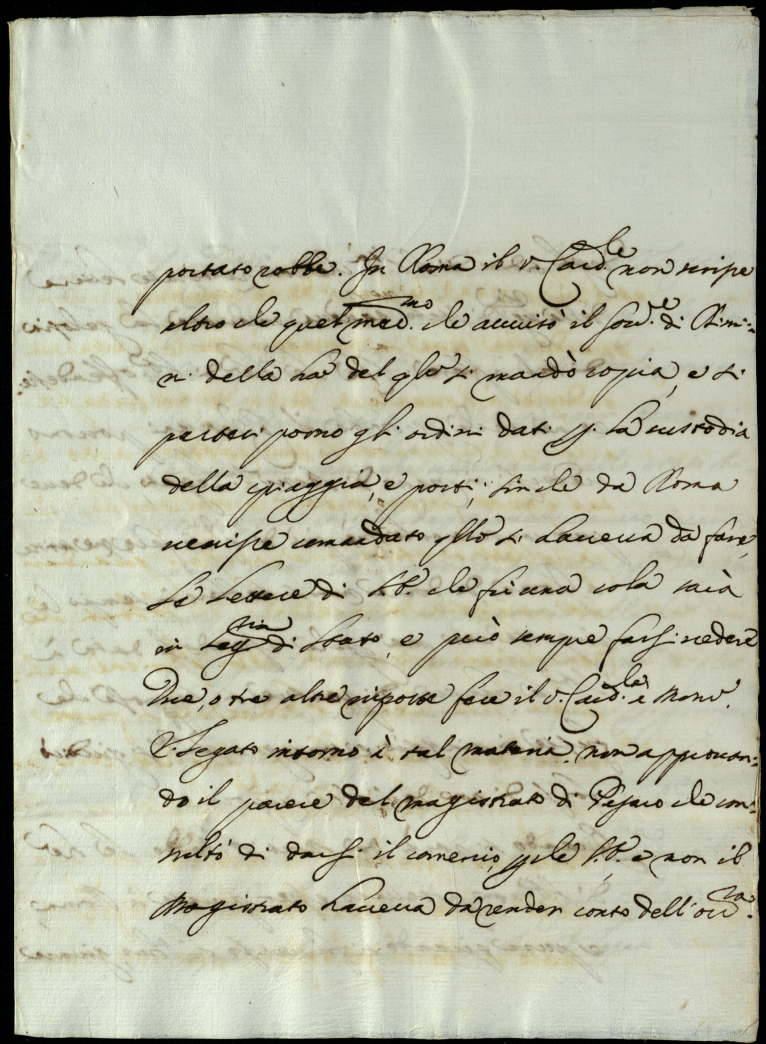 portato robbe. In Roma il S. Card.le non scrisse
altro che quel med.mo che avvisò il Gov.e di Rimi-
ni della qle si mandò copia, e si
gli ordini dati p. la custodia
della spiaggia, e porti, sin che da Roma
venisse comandato qllo si haveva da fare,
Le lettere di S.S. che fu una sola sarà
in Seg.ria di Stato, e può sempre farsi vedere
Due, o tre altre risposte fece il S. Card.le à Mons.
V. Legato intorno à tal materia, non approvan-
do il parere del magistrato di Pesaro che con-
sultò di darsi il comercio, pche S.S. e non il
Magistrato haveva da render conto dell'